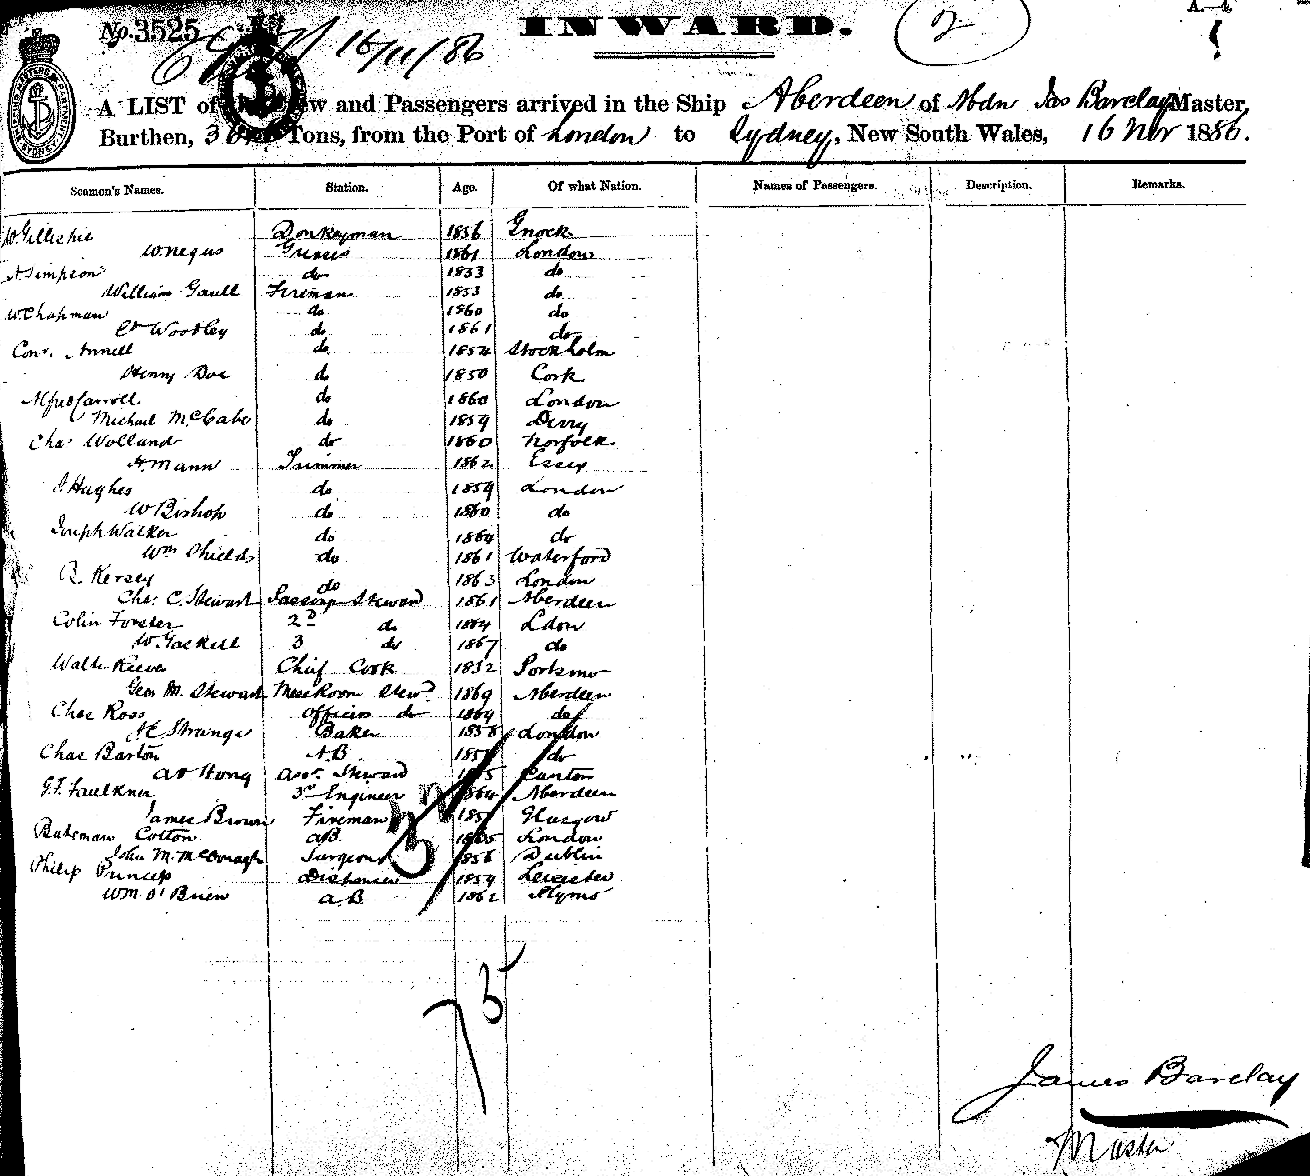 No. 3525
INWARD.
2
A.—4.
16/11/86
A LIST of Crew and Passengers arrived in the Ship Aberdeen of Abdn Jas Barclay Master,
Burthen, Tons, from the Port of London to Sydney, New South Wales, 16 Nov 1886.
Seamen's Names. Station. Age. Of what Nation. Names of Passengers. Description. Remarks.
W. Gillespie Donkeyman 1856
W. Negus 1861 London
A Simpson do 1853 do
William Gaull Fireman 1853 do
W. Chapman do 1860 do
Woolley do 1861 do
do 1854 Stockholm
Henny Doe do 1850 Cork
Alfred Carroll do 1860 London
Michael McCabe do 1859 Derry
Chas Wolland do 1860 Norfolk
H. Mann Trimmer 1862 Essex
J Hughes do 1859 London
W Bishop do 1860 do
Joseph Walker do 1864 do
Wm Shields do 1861 Waterford
R. Kersey do 1863 London
Chas. C. Stewart Steward 1861 Aberdeen
Colin Forster 2D do 1864 Ldon
W. Gaskell 3 do 1867 do
Walter Reeves Chief Cook 1852
Geo M. Stewart Mess Room Stewd 1869 Aberdeen
Chas Ross Officers do 1869 do
Strange Baker 1858 London
Chas Barton A.B do
Ah Hong Asst. Steward Canton
G.F. Faulkner 3rd Engineer 1864 Aberdeen
James Brown Fireman Glasgow
Bateman Cotton A.B. London
John M. McDonagh Surgeon 1856 Dublin
Philip Princep Dispenser 1859 Leicester
Wm O'Brien A.B 1862
32
75
James Barclay
Master